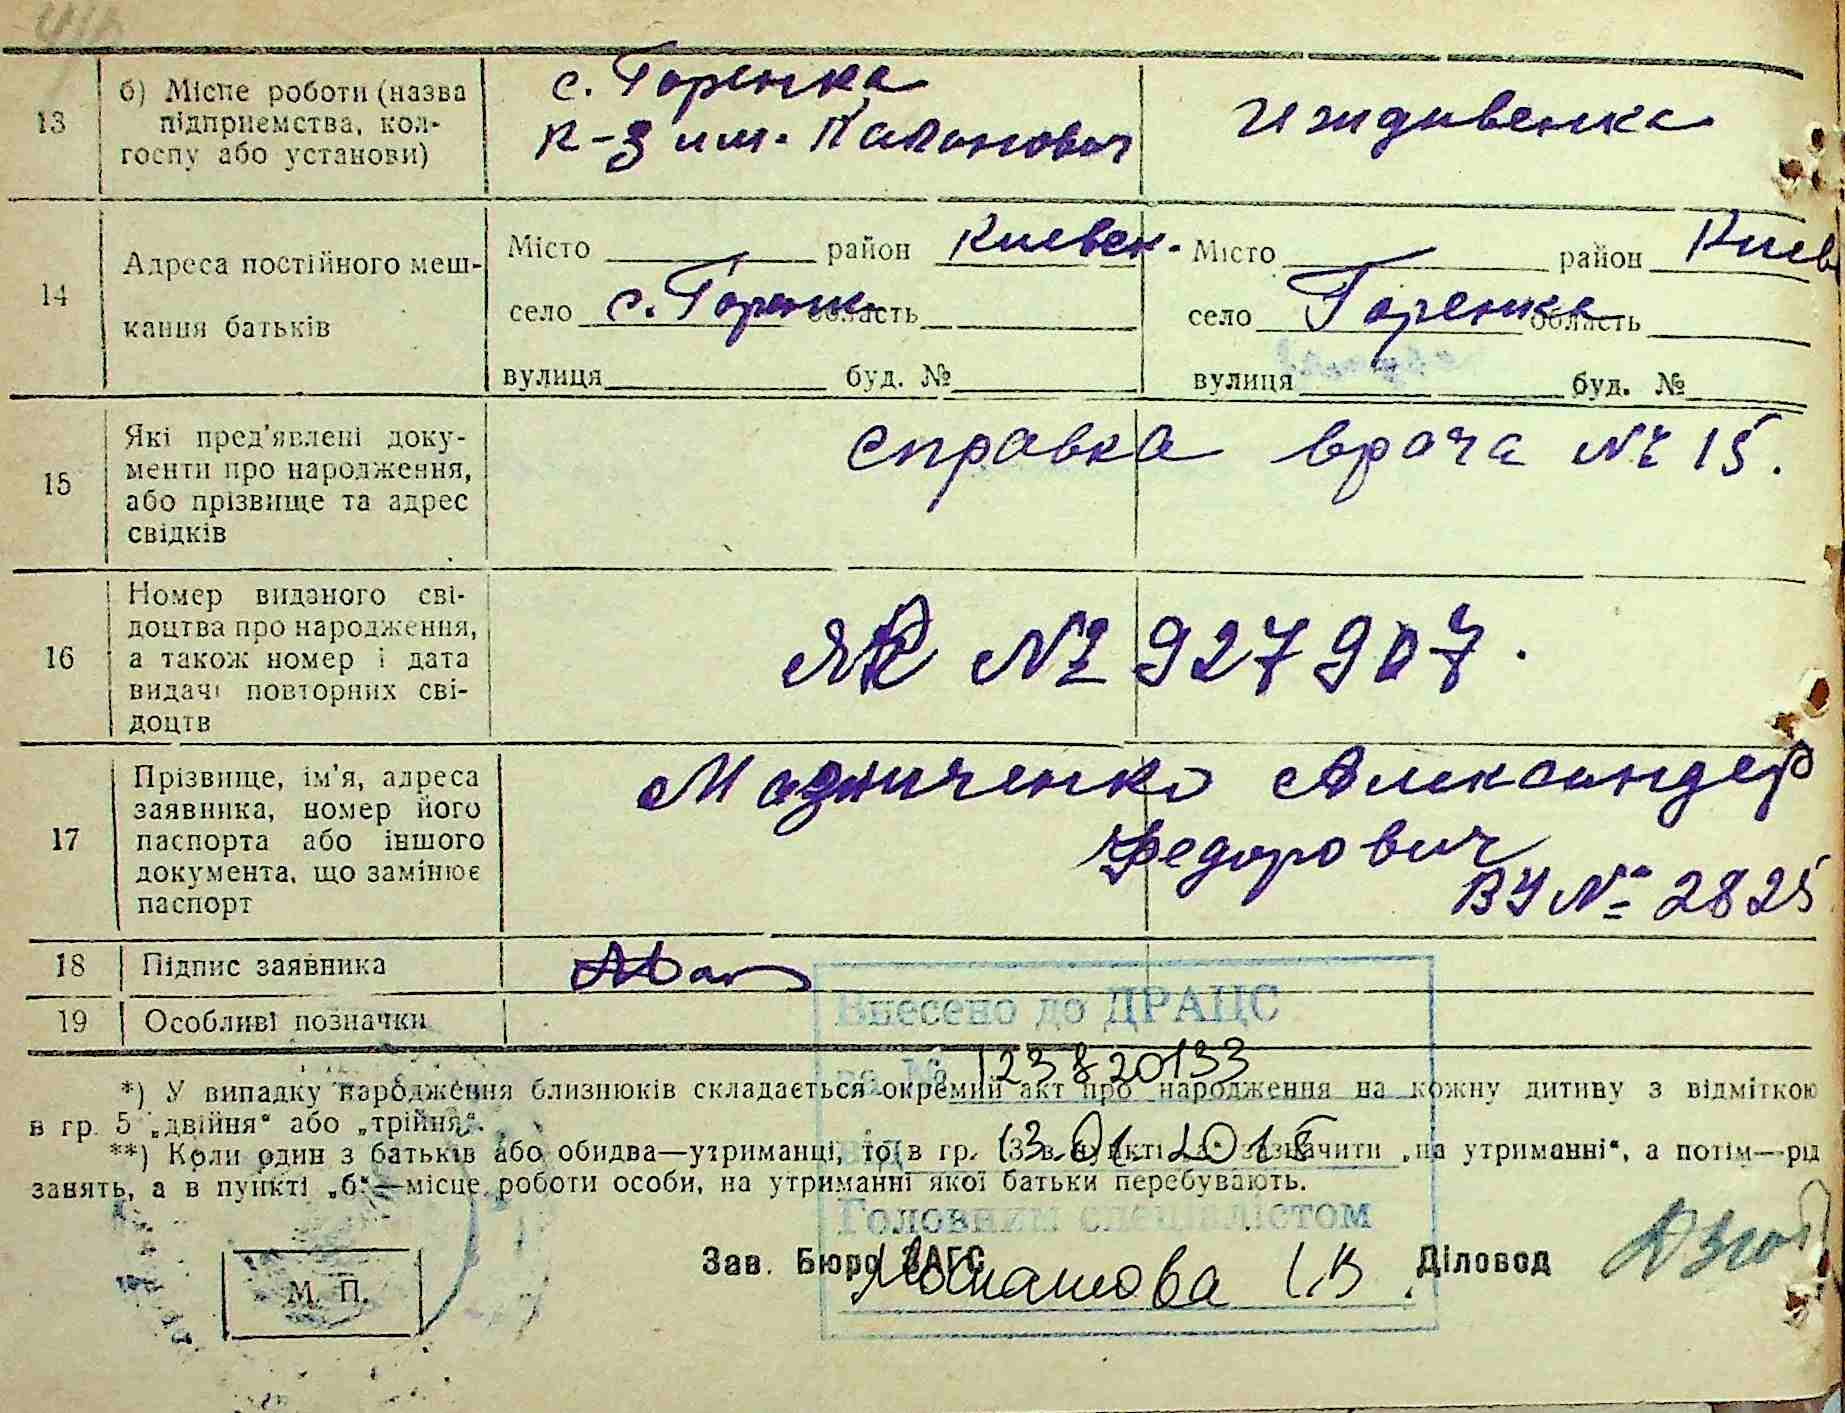 13
б) Місце роботи (назва
підприємства, кол-
госпу або установи)
с. Горенка
к-з им. Каганович
Иждивенка
14
Адреса постійного меш-
кання батьків
Місто район Киевск.
село с. Горенка область
вулиця буд. №
Місто район Киев
село Горенка область
вулиця буд. №
15
Які пред'явлені доку-
менти про народження,
або прізвище та адрес
свідків
справка врача № 15.
16
Номер виданого сві-
доцтва про народження,
а також номер і дата
видачі повторних сві-
доцтв
№ 927907.
17
Прізвище, ім'я, адреса
заявника, номер його
паспорта або іншого
документа, що замінює
паспорт
Александер
Федорович
ВУ № 2825
18
Підпис заявника
19
Особливі позначки
Внесено до ДРАЦС
за № 123820133
*) У випадку народження близнюків складається окремий акт про народження на кожну дитину з відміткою
в гр. 5 „двійня“ або „трійня“.
**) Коли один з батьків або обидва—утриманці, то в гр. 13 в пункті зазначити „на утриманні“, а потім—рід
занять, а в пункті „б“—місце роботи особи, на утриманні якої батьки перебувають.
від 13.01.201
Головним спеціалістом
І.В.
М. П.
Зав. Бюро ЗАГС
Діловод